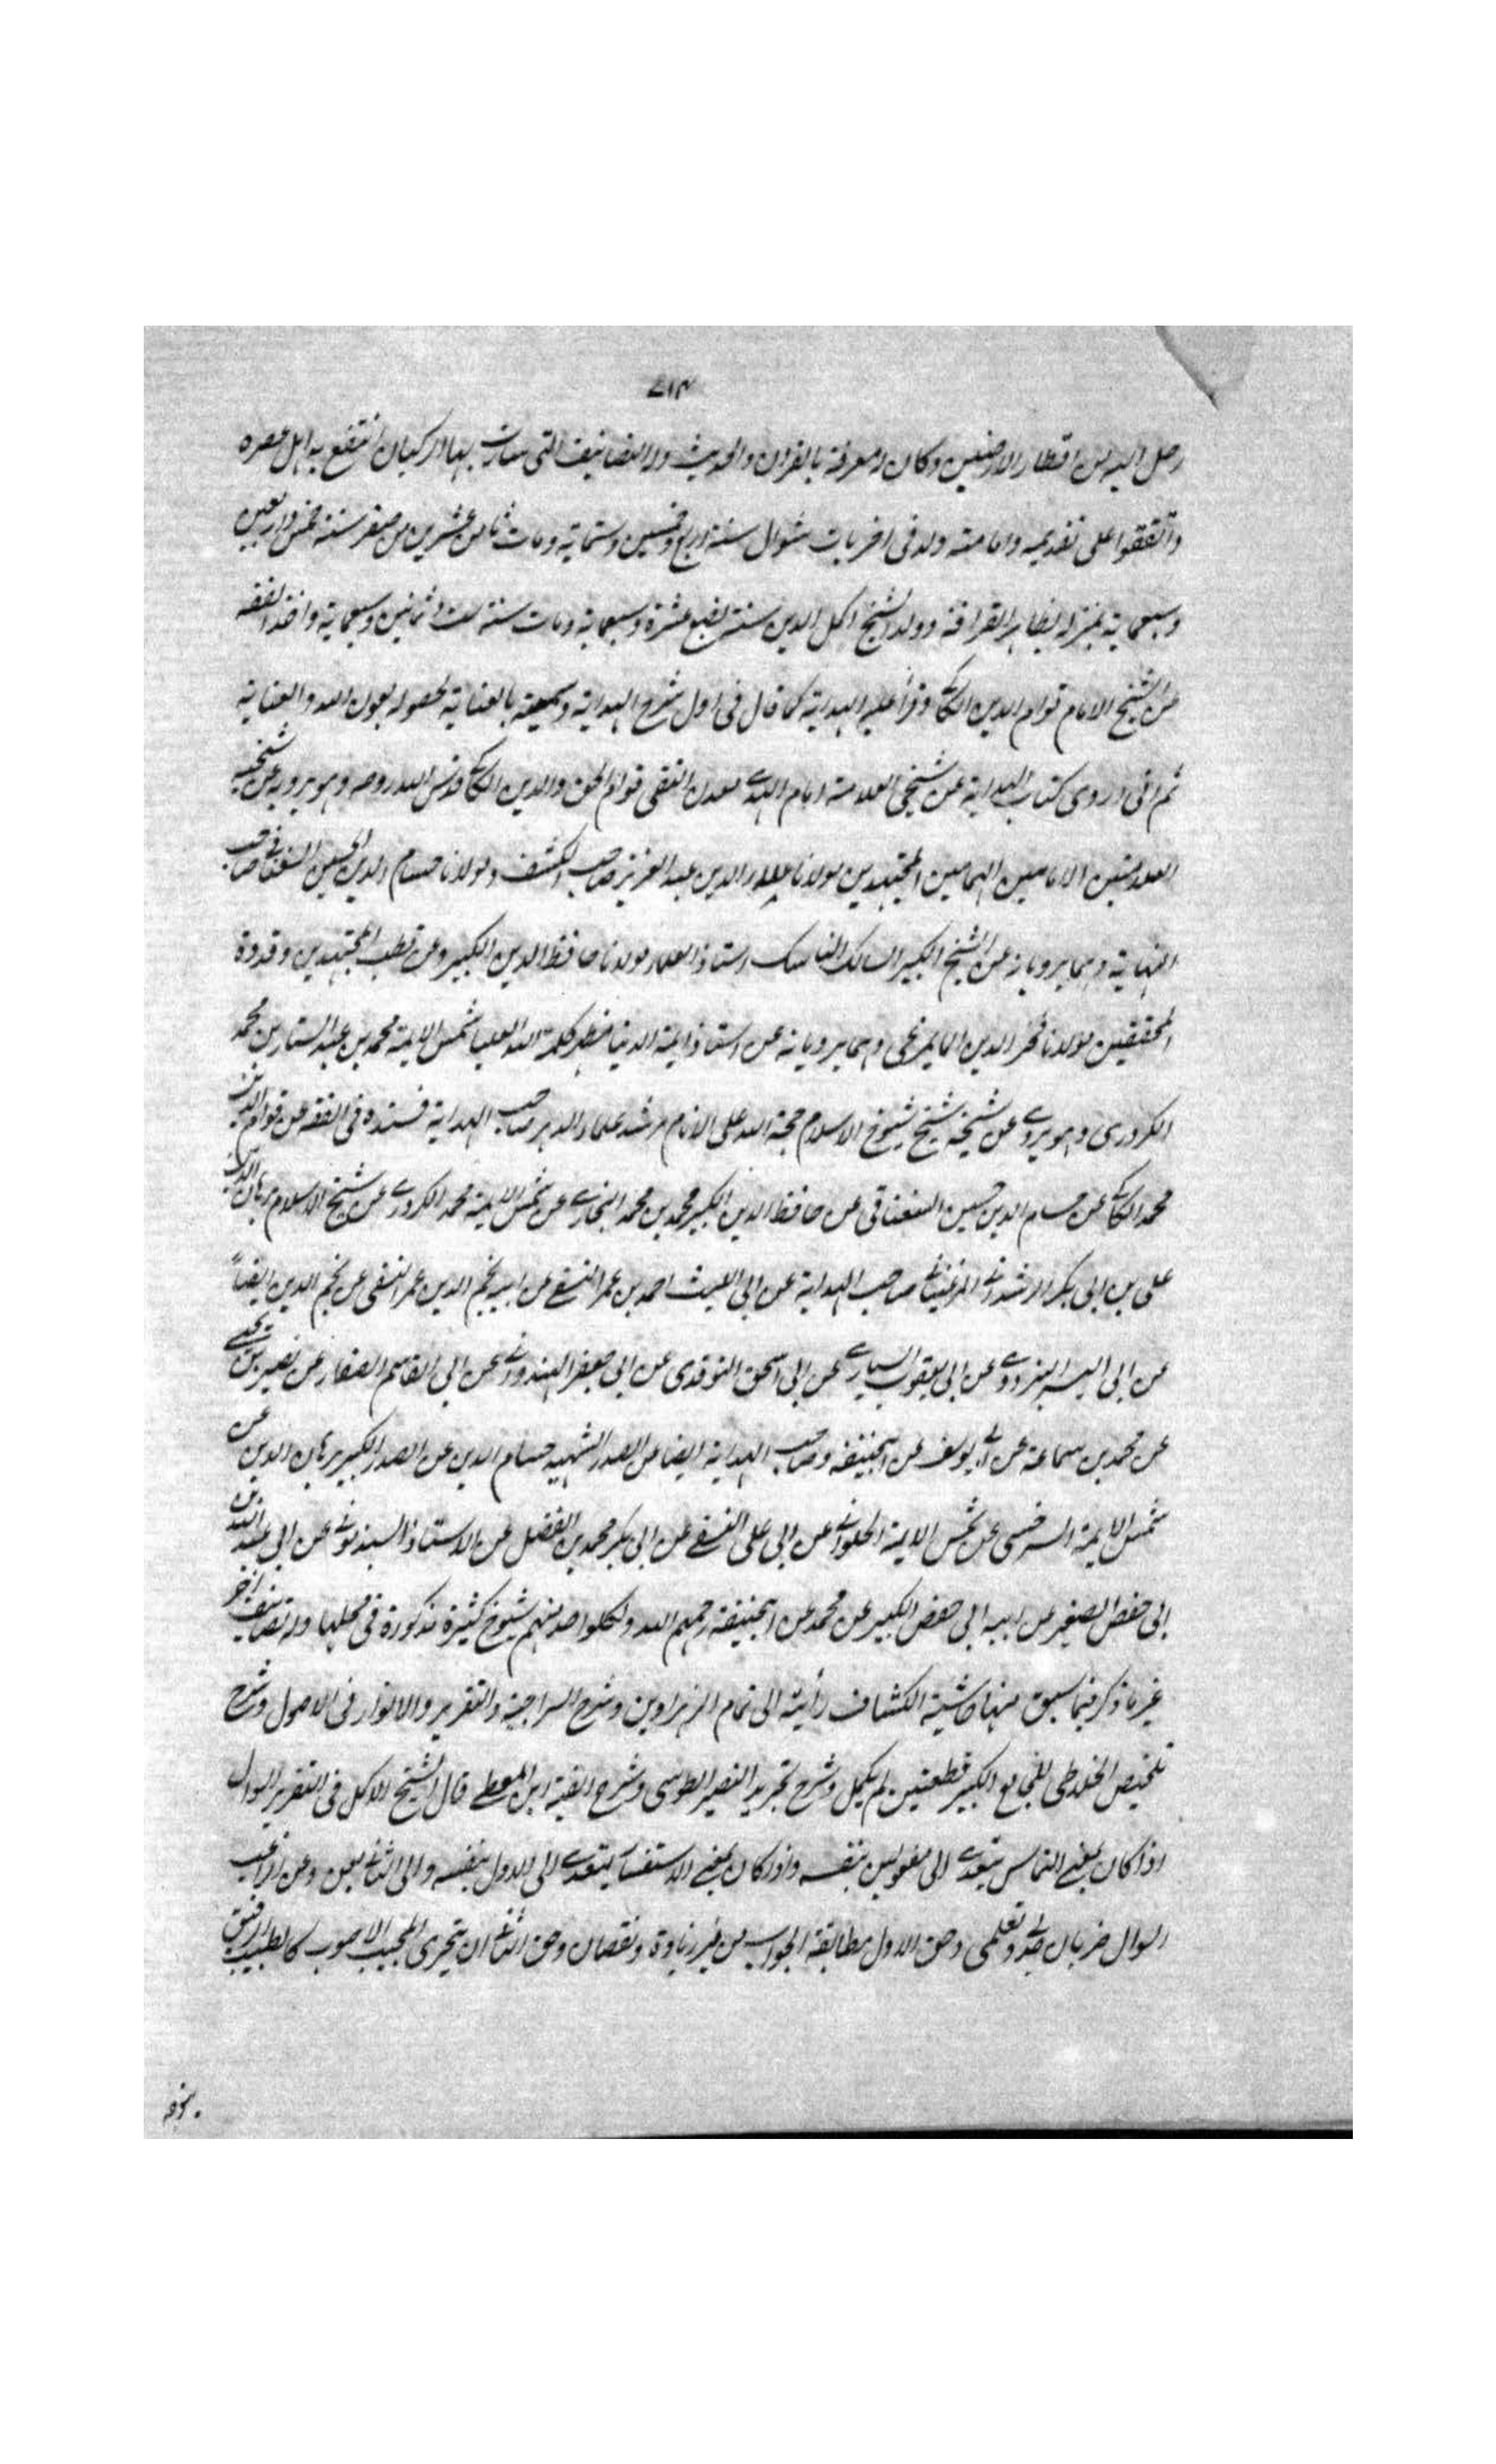 ٧١٣
رحل اليه من اقطار الارضين وكان له معرفة بالقران والحديث وله التصانيف التى سارت بها الركبان انتفع به اهل عصره
واتفقوا على تقديمه وامامته ولد فى اخريات شوال سنة اربع وخمسين وستماية ومات ثامن عشرين من صفر سنة خمس واربعين
وسبعماية بمنزله بظاهر القرافة وولد الشيخ اكمل الدين سنة بضع عشرة وسبعماية ومات سنة ست وثمانين وسبعماية واخذ الفقه
من الشيخ الامام قوام الدين الكاكى وقرأ عليه الهداية كما قال فى اول شرح الهداية وسميته بالعناية لحصوله بعون الله والعناية
ثم انى اروى كتاب الهداية عن شيخى العلامة امام الهدى معدن التقى قوام الحق والدين الكاكى قدس الله روحه وهو يرويه عن شيخيه
العلامتين الامامين الهمامين المجتهدين مولانا علاء الدين عبد العزيز صاحب الكشف ومولانا حسام الدين الحسين السغناقى صاحب
النهاية وهما يرويانه عن الشيخ الكبير السالك الناسك استاذ العلماء مولانا حافظ الدين الكبير وعن قطب المجتهدين وقدوة
المحققين مولانا فخر الدين المايمرغى وهما يرويانه عن استاذ ايمة الدنيا مظهر كلمة الله العليا شمس الايمة محمد بن عبد الستار بن محمد
الكردرى وهو يروى عن شيخه شيخ شيوخ الاسلام حجة الله على الانام مرشد علماء الدهر صاحب الهداية فسنده فى الفقه عن قوام الدين
محمد الكاكى عن حسام الدين حسين السغناقى عن حافظ الدين الكبير محمد بن محمد البخارى عن شمس الايمة محمد الكردرى عن شيخ الاسلام برهان الدين
على بن ابى بكر الرشدانى المرغينانى صاحب الهداية عن ابى الليث احمد بن عمر النسفى عن ابيه نجم الدين عمر النسفى عن نجم الدين ايضاً
عن ابى اليسر البزدوى عن ابى يعقوب السيارى عن ابى اسحق النوقدى عن ابى جعفر الهندوانى عن ابى القاسم الصفار عن نصير بن يحيى
عن محمد بن سماعة عن ابى يوسف عن ابيحنيفة وصاحب الهداية ايضا عن الصدر الشهيد حسام الدين عن الصدر الكبير برهان الدين عن
شمس الايمة السرخسى عن شمس الايمة الحلوانى عن ابى على النسفى عن ابى بكر محمد بن الفضل عن الاستاذ السبذمونى عن ابى عبد الله بن
ابى حفص الصغير عن ابيه ابى حفص الكبير عن محمد عن ابيحنيفة رحمهم الله ولكلواحد منهم شيوخ كثيرة مذكورة فى محلها وله تصانيف اخر
غير ما ذكر فيما سبق منها حاشية الكشاف رأيته الى تمام الزهراوين وشرح السراجية والتقرير والانوار فى الاصول وشرح
تلخيص الخلاطى للجامع الكبير قطعتين لم يكمل وشرح تجريد النصير الطوسى وشرح الفية ابن المعطى قال الشيخ الاكمل فى التقرير السوال
اذا كان بمعنى التماس يتعدى الى مفعولين بنفسه واذا كان بمعنى الاستفسار يتعدى الى الاول بنفسه والى الثانى بعن وعن الراغب
السوال ضربان جدلى وتعلمى وحق الاول مطابقة الجواب من غير زيادة ونقصان وحق الثانى ان يتحرى المجيب الاصوب كالطبيب الرفيق